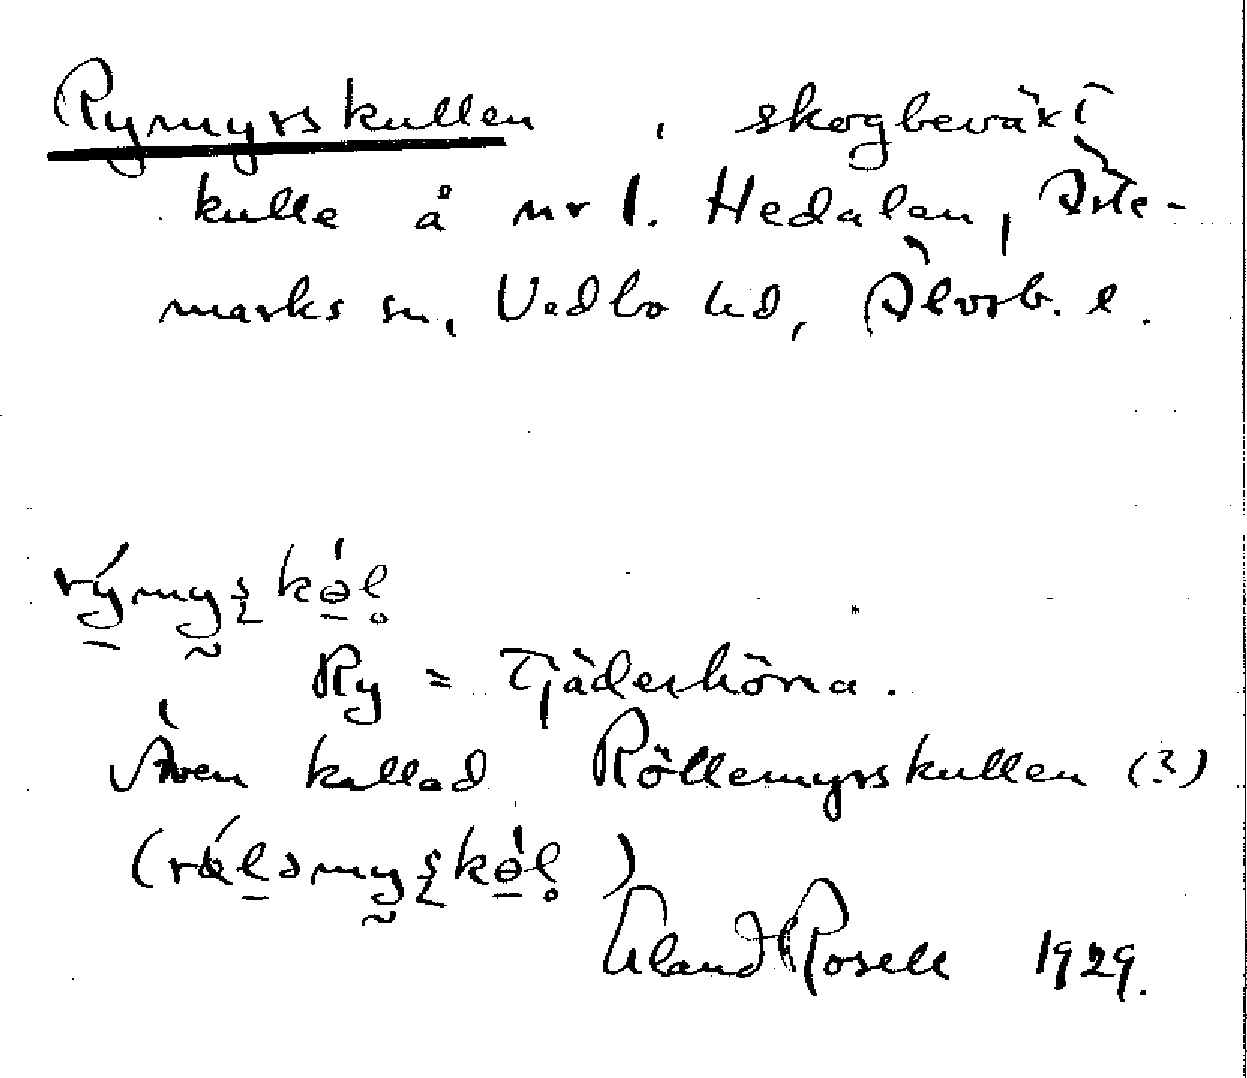 Rymyrskullen, skogbeväxt
kulle å nr 1. Hedalen, Ärte-
marks sn, Vedbo hd, Älvsb. l.
Ry = Tjäderhöna.
Även kallad Röllemyrskullen (?)
Erland Rosell 1929.